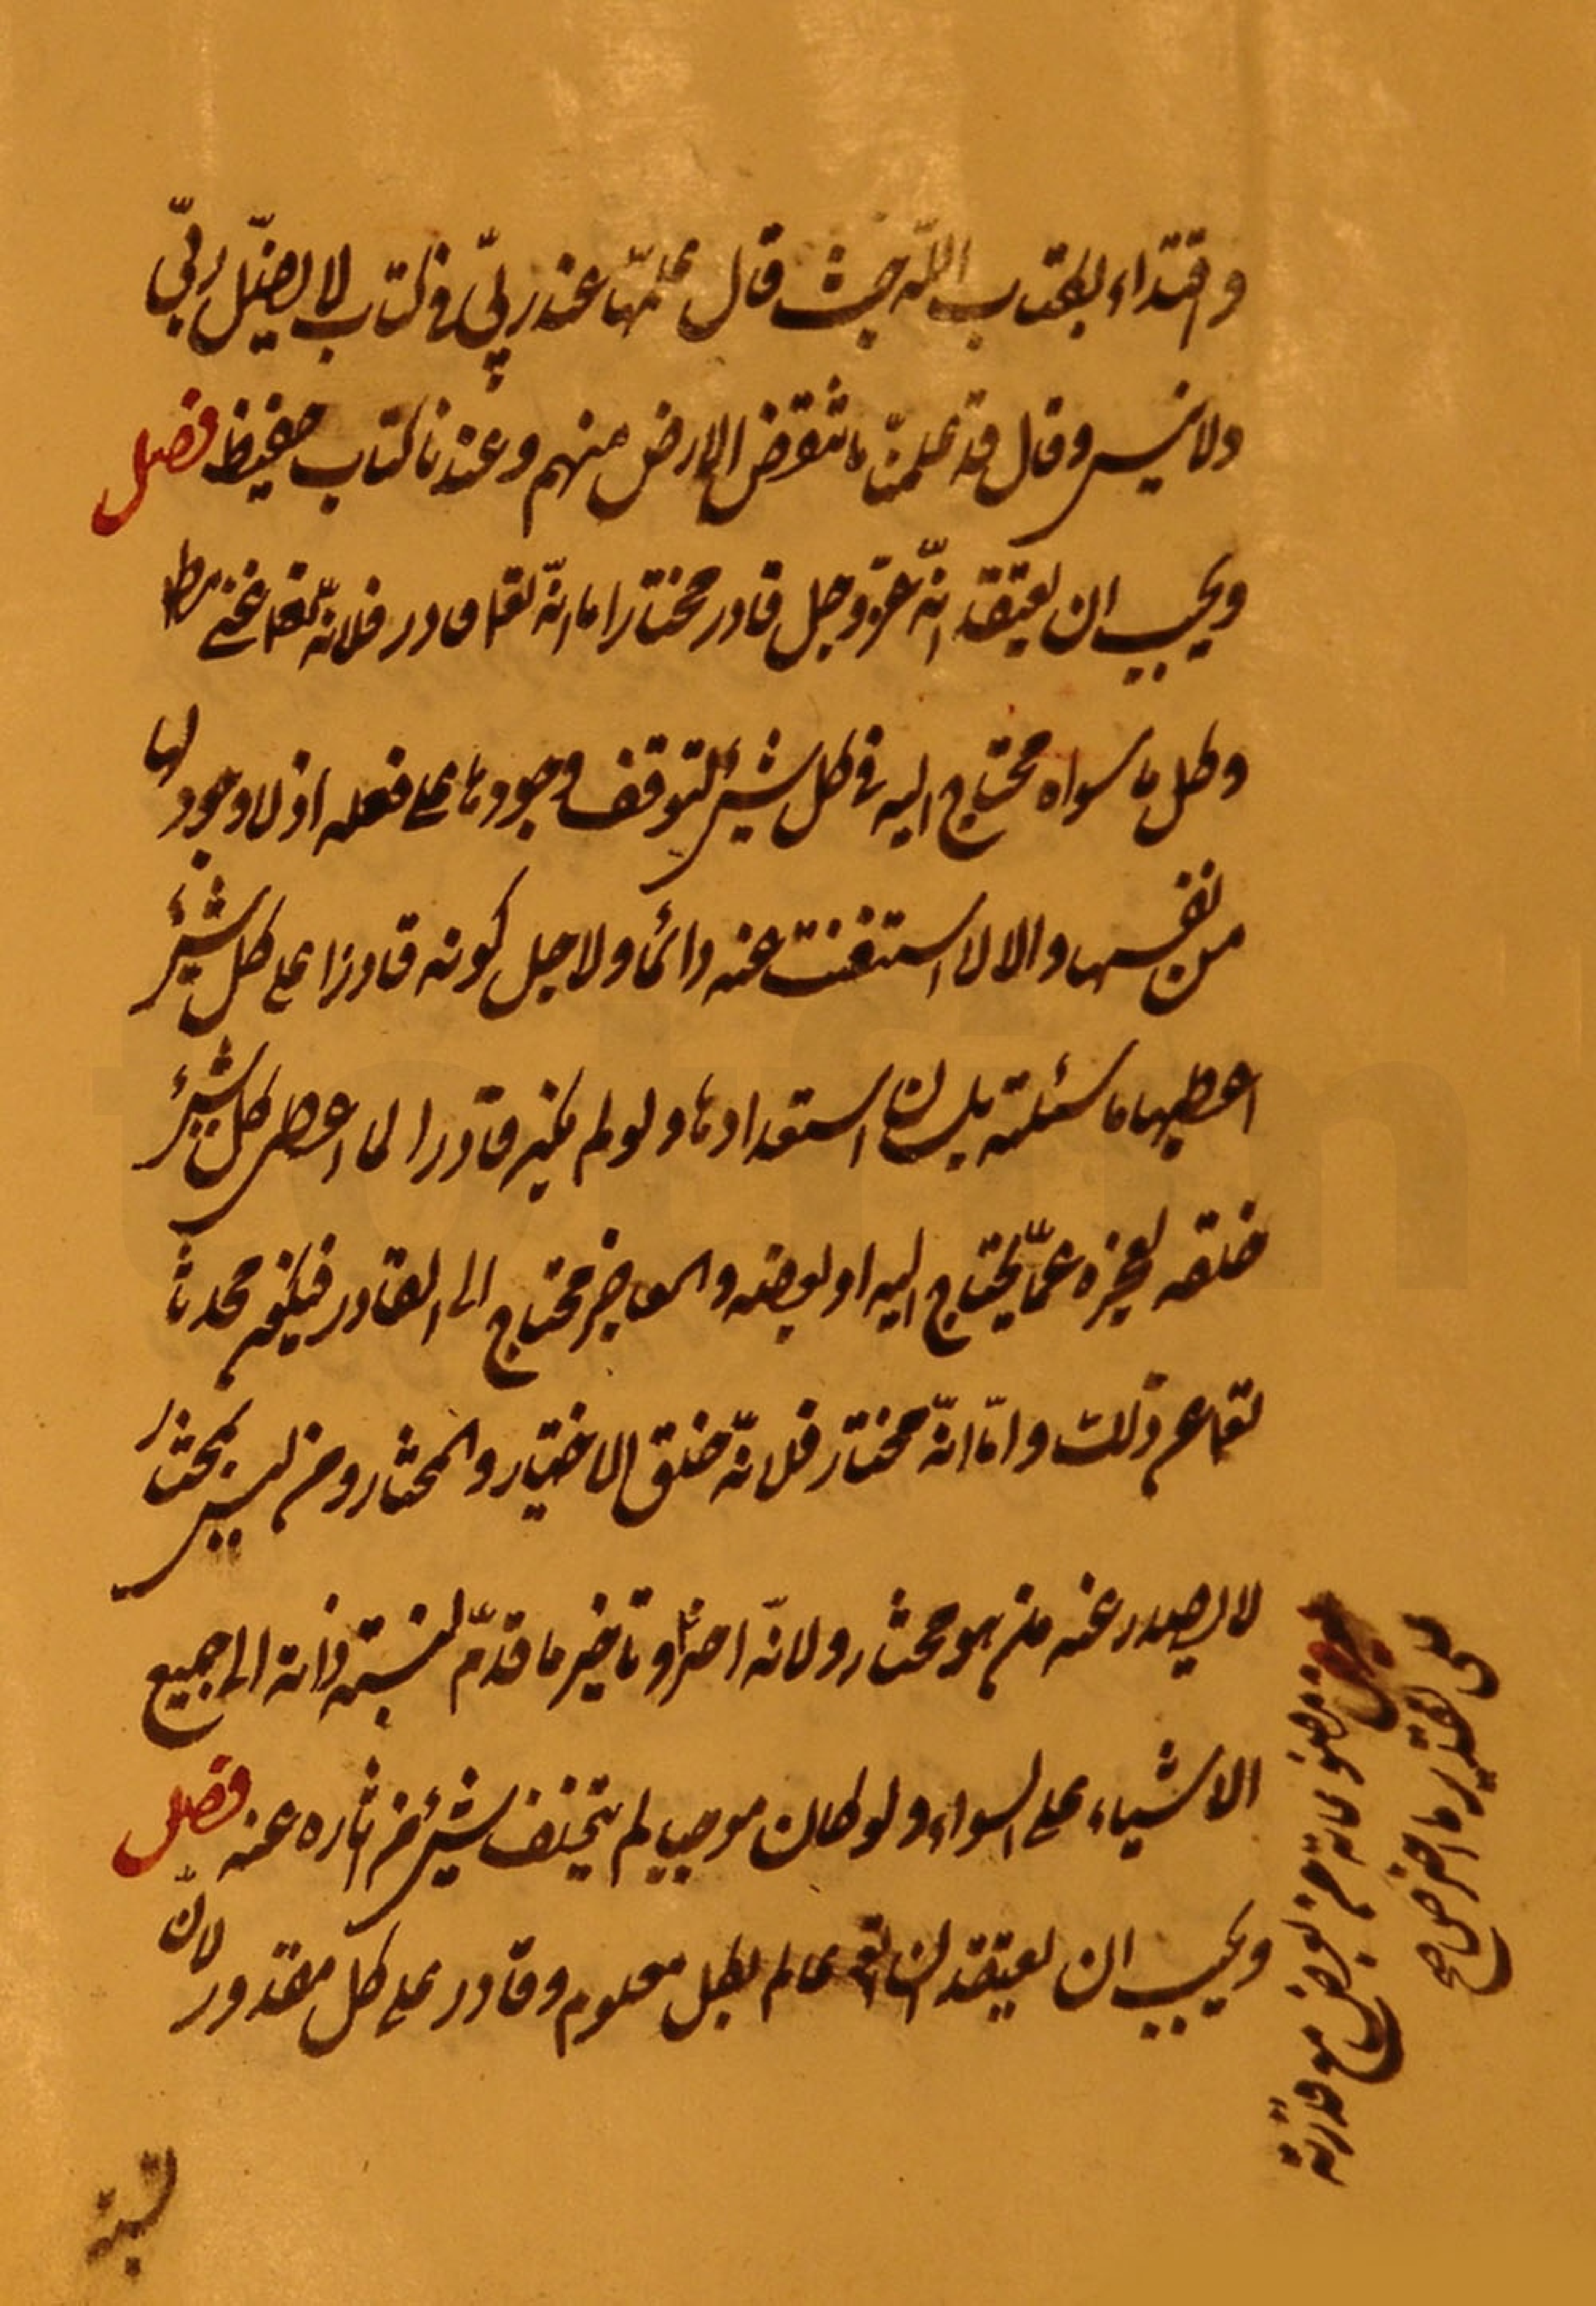 واقتداء بكتاب اللّه حيث قال علمها عند ربّي في كتاب لا يضلّ ربّي
ولا ينسى وقال قد علمنا ما تنقص الارض منهم وعندنا كتاب حفيظ فصل
ويجب ان يعتقد انّه عزّ وجل قادر مختار اما انّه تعا قادر فلانّه تعا غني مط
وكل ما سواه محتاج اليه في كل شيئ لتوقف وجودها على فعله اذ لا وجود لها
من نفسها والا لاستغنت عنه دائما ولاجل كونه قادرا على كل شيئ
اعطيها ما سئلته بلسان استعدادها ولو لم يكن قادرا لما اعطى كل شيئ
خلقه لعجزه عمّا يحتاج اليه او بعضه والعاجز محتاج الى القادر فيكون محدثا
تعا عن ذلك وامّا انّه مختار فلانّه خلق الاختيار والمختار ومن ليس بمختار
لا يصدر عنه من هو مختار ولانّه اخر او تاخير ما قدّم لنسبة ذاته الى جميع
الاشياء على السواء ولو كان موجبا لم يتخلف شيئ من اثاره عنه فصل
ويجب ان يعتقد ان الله تعا عالم بكل معلوم وقادر على كل مقدور لانّ
مصنوعاته عن بعض مع قدرته
على تقدير ما اخر ص صح
نسبة